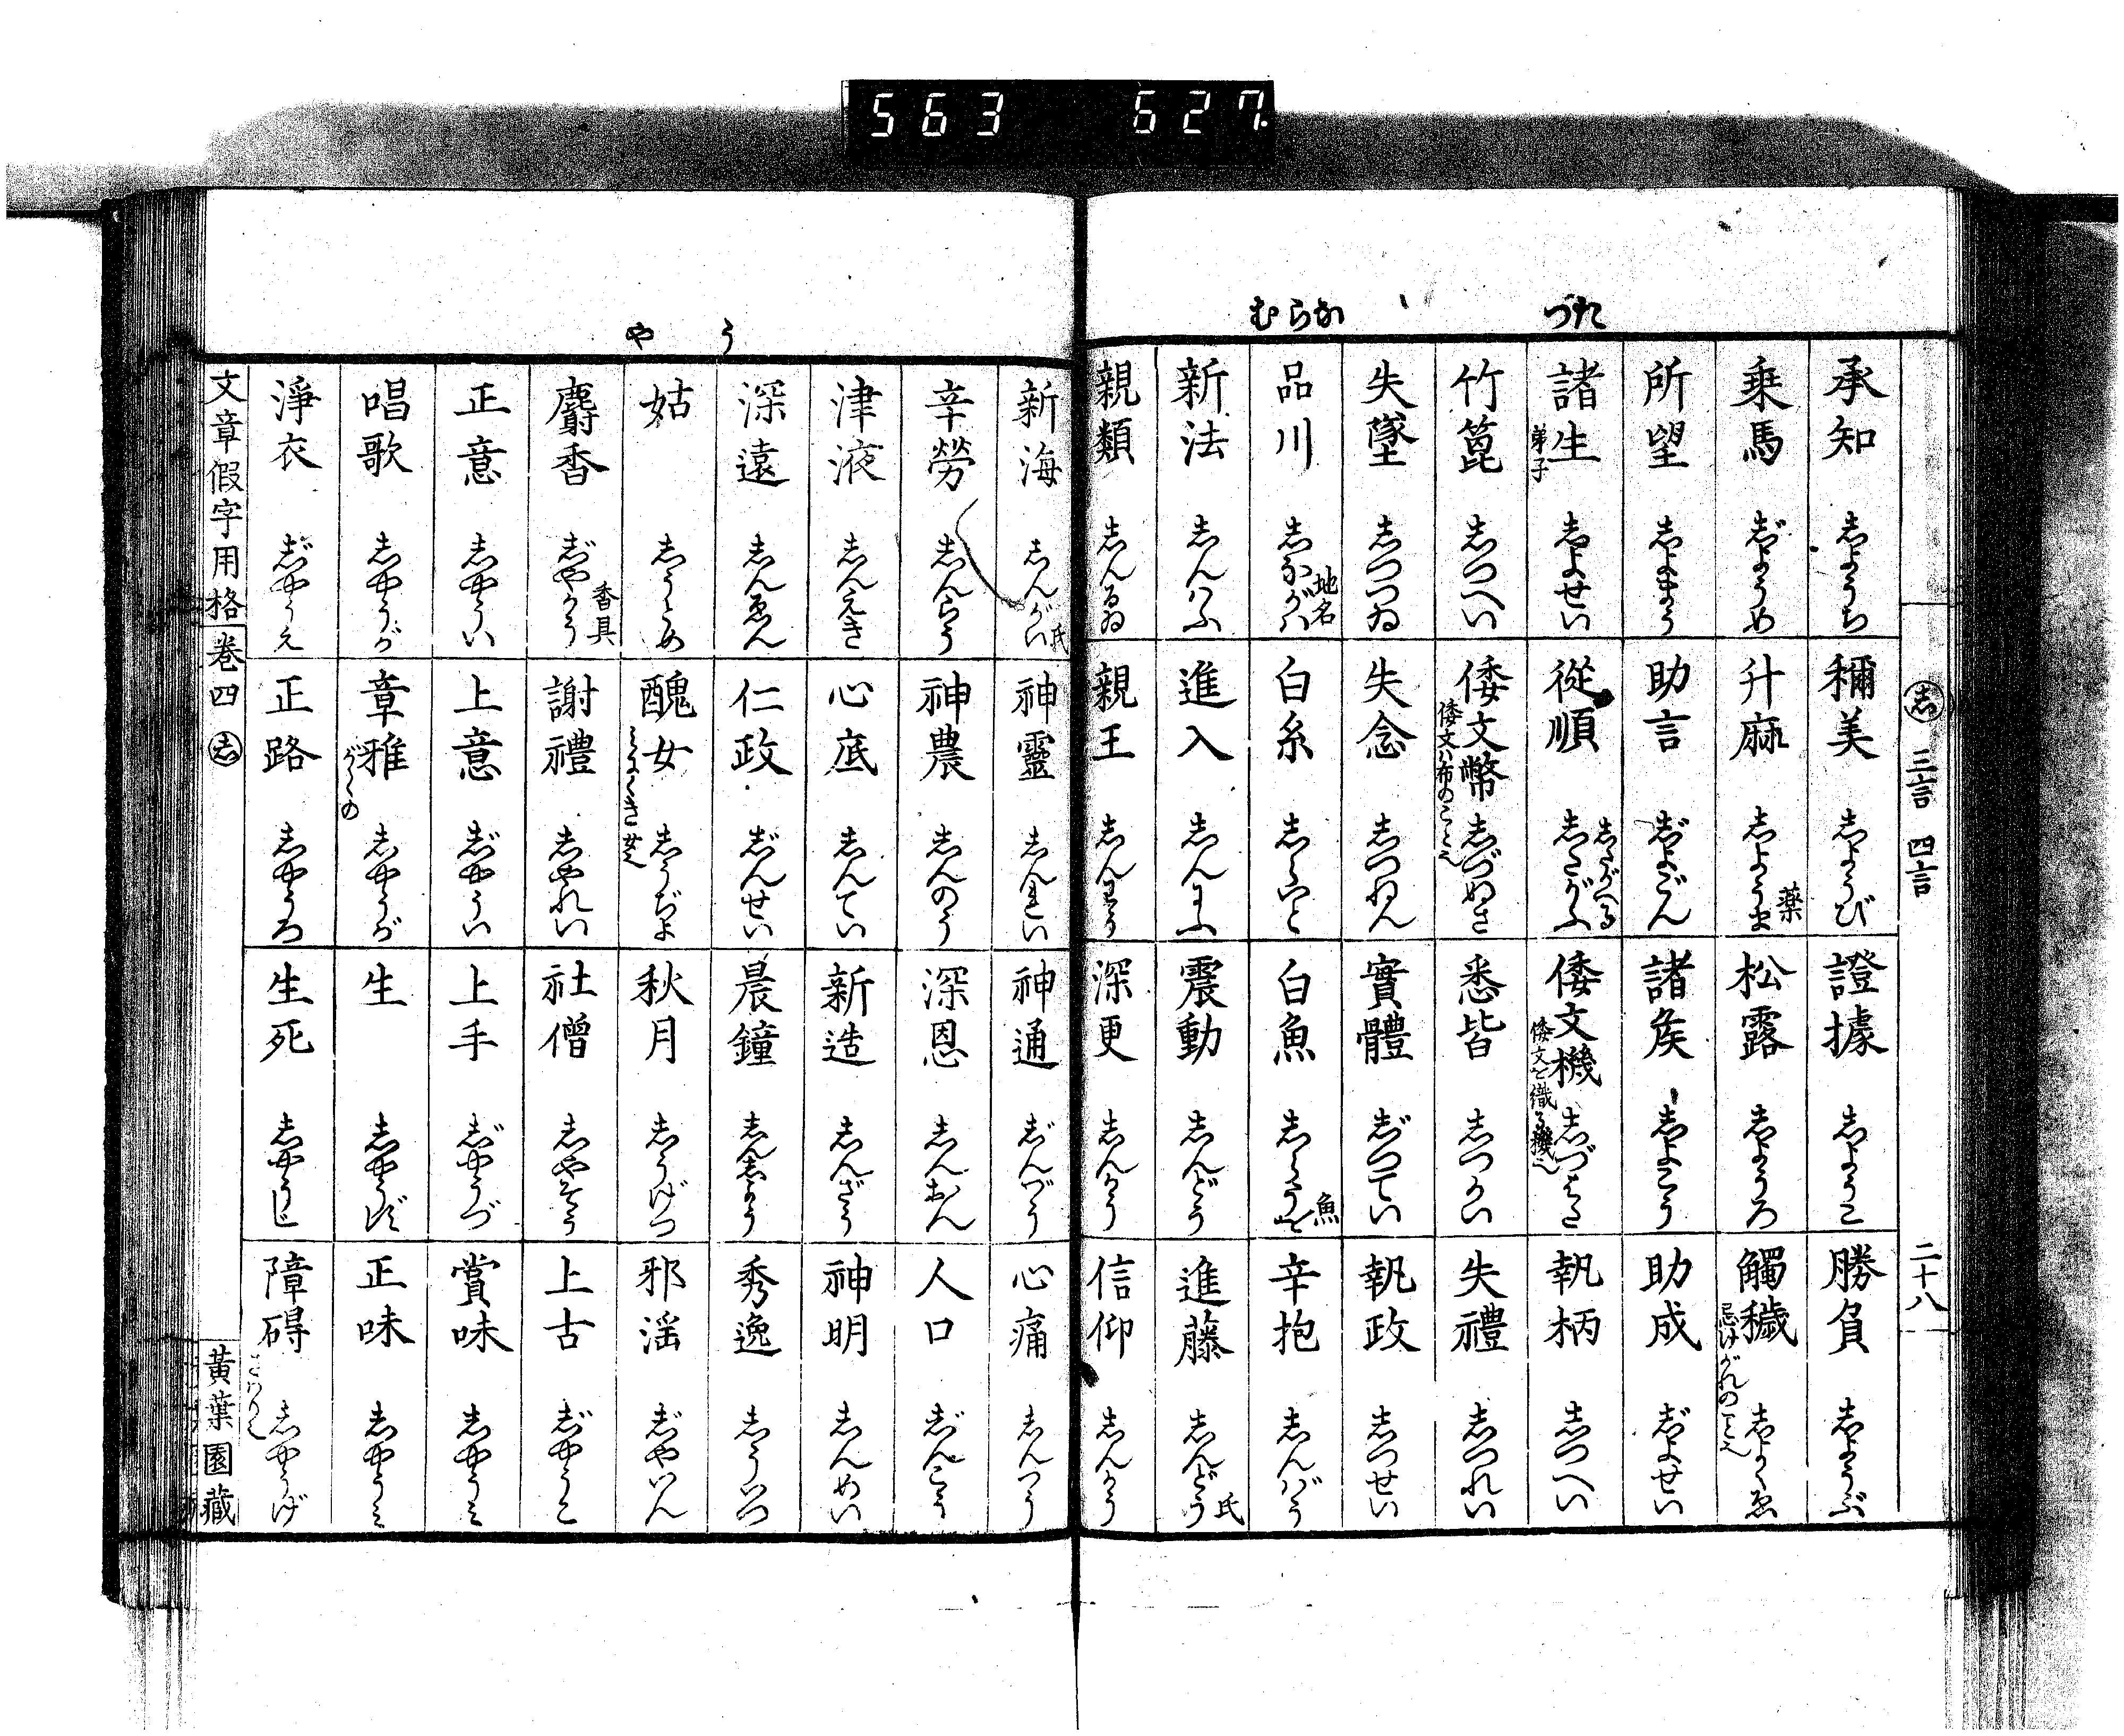 563 627
づた
むらな
う
や
㊂ 三言 四言 二十八
承知 しようち
稱美 しようび
證據 しようこ
勝負 しようぶ
乗馬 じようめ
升麻 しようま 薬
松露 しようろ
觸穢 しよくゑ 忌けがれのこと也
所望 しよまう
助言 じよごん
諸矦 しよこう
助成 じよせい
諸生 弟子 しよせい
從順 したがへる したがふ
倭文機 しづはた 倭文を織る機也
執柄 しつへい
竹篦 しつへい
倭文幣 しづぬさ 倭文ハ布のこと也
悉皆 しつかい
失禮 しつれい
失墜 しつつゐ
失念 しつねん
實體 じつてい
執政 しつせい
品川 しながハ 地名
白糸 しらいと
白魚 しらうを 魚
辛抱 しんばう
新法 しんハふ
進入 しんにふ
震動 しんどう
進藤 しんどう 氏
親類 しんるゐ
親王 しんわう
深更 しんかう
信仰 しんかう
新海 しんがい 氏
神靈 しんれい
神通 じんづう
心痛 しんつう
辛勞 しんらう
神農 しんのう
深恩 しんおん
人口 じんこう
津液 しんえき
心底 しんてい
新造 しんざう
神明 しんめい
深遠 しんゑん
仁政 じんせい
晨鐘 しんしよう
秀逸 しういつ
姑 しうとめ
醜女 しうぢよ みにくき女也
秋月 しうげつ
邪淫 じやいん
麝香 じやかう 香具
謝禮 しやれい
社僧 しやそう
上古 じやうこ
正意 しやうい
上意 じやうい
上手 じやうづ
賞味 しやうミ
唱歌 しやうが
章雅 しやうが がくの
生 しやうず
正味 しやうミ
淨衣 じやうえ
正路 しやうろ
生死 しやうじ
障碍 しやうげ さはり也
文章假字用格 卷四 ㊂ 黄葉園藏